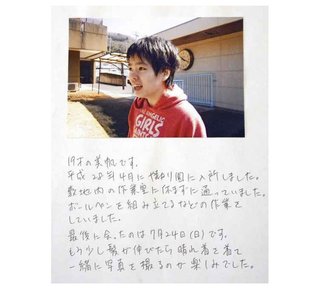 GIRLS
19才の美帆です。
平成28年4月にやまゆり園に入所しました。
敷地内の作業室に休まずに通っていました。
ボールペンを組み立てるなどの作業を
していました。
最後に会ったのは7月24日(日)です。
もう少し髪が伸びたら晴れ着を着て
一緒に写真を撮るのが楽しみでした。